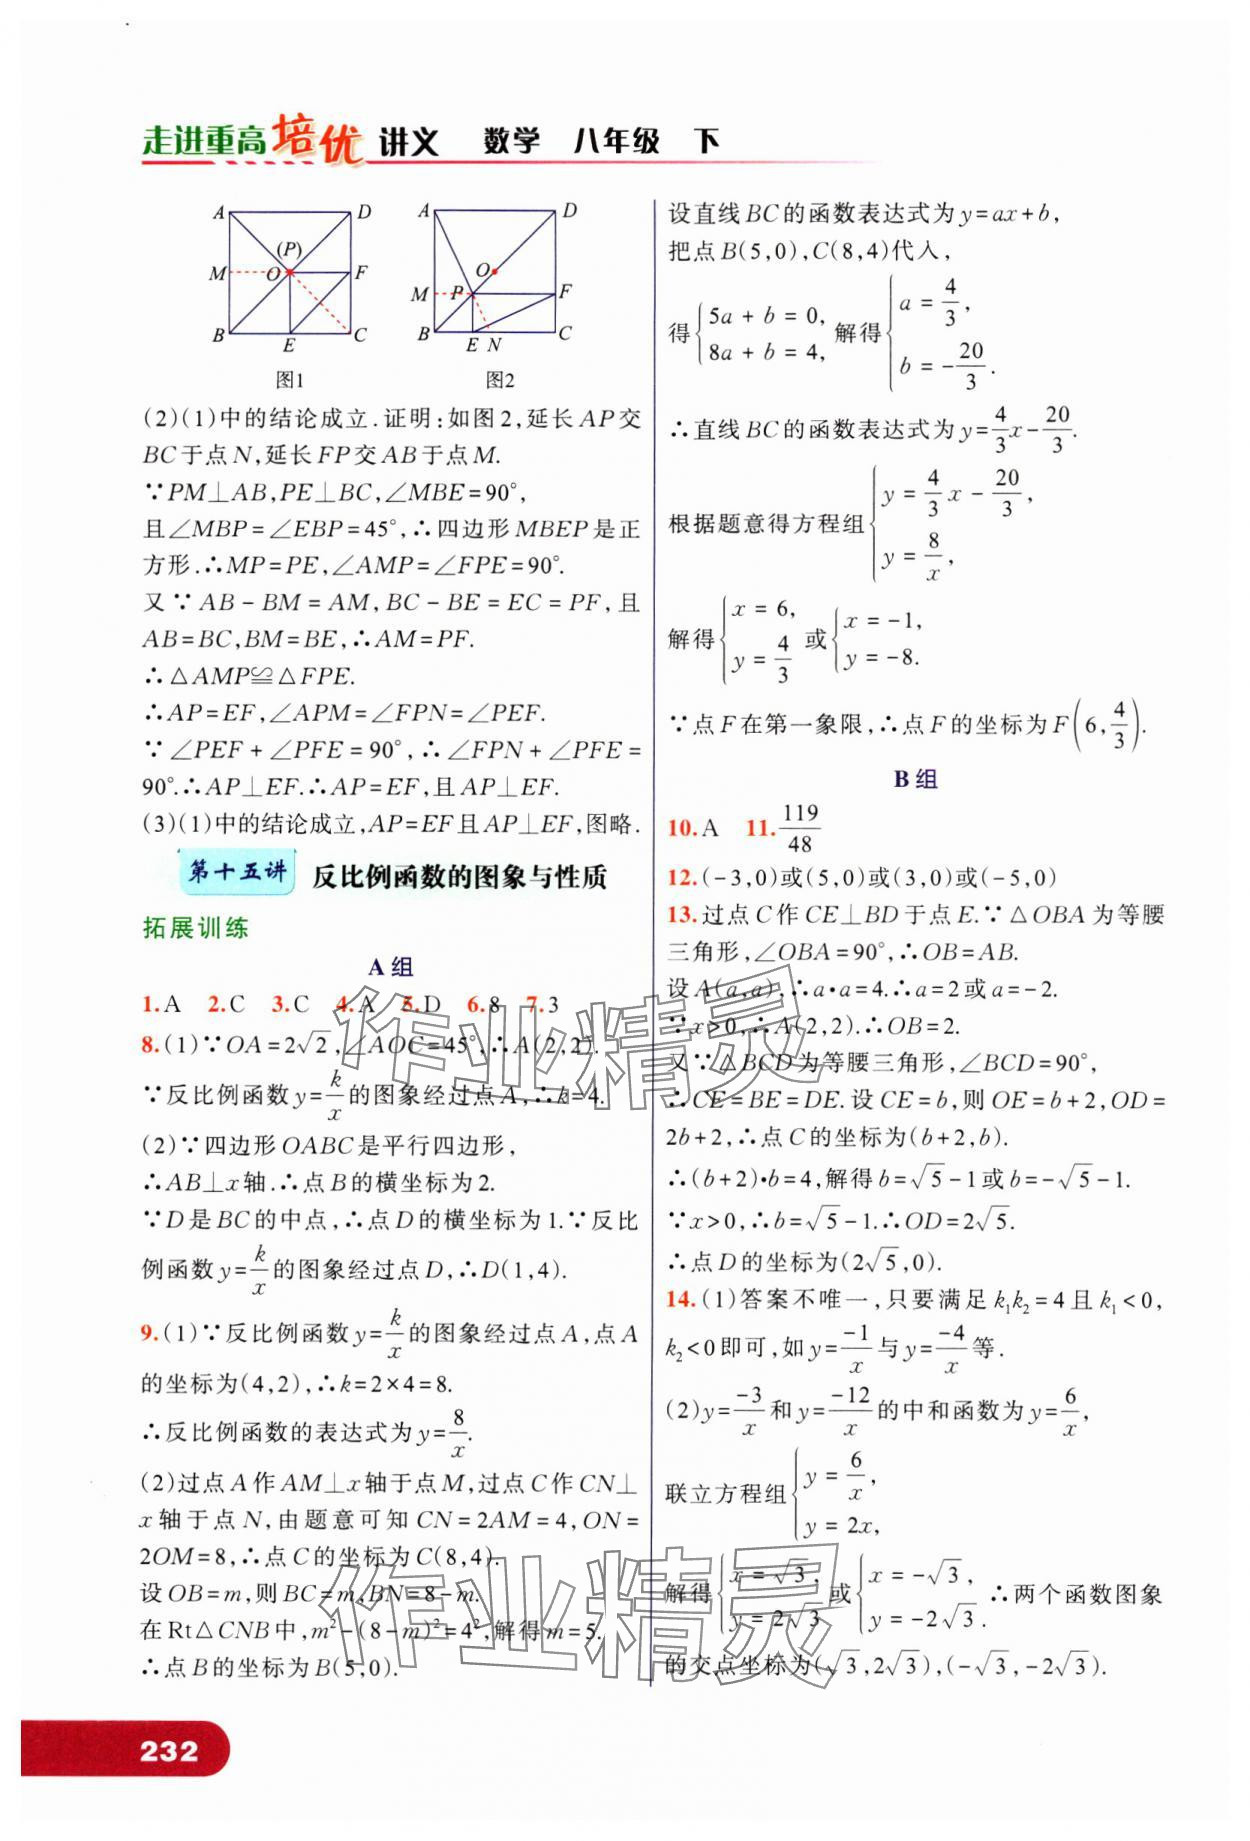 走进重高培优讲义 数学 八年级 下
A D
(P)
M O F
B E C
图1
A D
O
M P F
B E N C
图2
(2)(1)中的结论成立.证明:如图2,延长AP交
BC于点N,延长FP交AB于点M.
∵PM⊥AB,PE⊥BC,∠MBE=90°,
且∠MBP=∠EBP=45°,∴四边形MBEP是正
方形.∴MP=PE,∠AMP=∠FPE=90°.
又∵AB-BM=AM,BC-BE=EC=PF,且
AB=BC,BM=BE,∴AM=PF.
∴△AMP≌△FPE.
∴AP=EF,∠APM=∠FPN=∠PEF.
∵∠PEF+∠PFE=90°,∴∠FPN+∠PFE=
90°.∴AP⊥EF.∴AP=EF,且AP⊥EF.
(3)(1)中的结论成立,AP=EF且AP⊥EF,图略.
第十五讲 反比例函数的图象与性质
拓展训练
A组
1.A 2.C 3.C 4.A 5.D 6.8 7.3
8.(1)∵OA=2√2,∠AOC=45°,∴A(2,2).
∵反比例函数y=k/x的图象经过点A,∴k=4.
(2)∵四边形OABC是平行四边形,
∴AB⊥x轴.∴点B的横坐标为2.
∵D是BC的中点,∴点D的横坐标为1.∵反比
例函数y=k/x的图象经过点D,∴D(1,4).
9.(1)∵反比例函数y=k/x的图象经过点A,点A
的坐标为(4,2),∴k=2×4=8.
∴反比例函数的表达式为y=8/x.
(2)过点A作AM⊥x轴于点M,过点C作CN⊥
x轴于点N,由题意可知CN=2AM=4,ON=
2OM=8,∴点C的坐标为C(8,4).
设OB=m,则BC=m,BN=8-m.
在Rt△CNB中,m²-(8-m)²=4²,解得m=5.
∴点B的坐标为B(5,0).
设直线BC的函数表达式为y=ax+b,
把点B(5,0),C(8,4)代入,
得{5a+b=0, 8a+b=4, 解得{a=4/3, b=-20/3.
∴直线BC的函数表达式为y=4/3x-20/3.
根据题意得方程组{y=4/3x-20/3, y=8/x,
解得{x=6, y=4/3 或{x=-1, y=-8.
∵点F在第一象限,∴点F的坐标为F(6,4/3).
B组
10.A 11.119/48
12.(-3,0)或(5,0)或(3,0)或(-5,0)
13.过点C作CE⊥BD于点E.∵△OBA为等腰
三角形,∠OBA=90°,∴OB=AB.
设A(a,a),∴a·a=4.∴a=2或a=-2.
∵x>0,∴A(2,2).∴OB=2.
又∵△BCD为等腰三角形,∠BCD=90°,
∴CE=BE=DE.设CE=b,则OE=b+2,OD=
2b+2,∴点C的坐标为(b+2,b).
∴(b+2)·b=4,解得b=√5-1或b=-√5-1.
∵x>0,∴b=√5-1.∴OD=2√5.
∴点D的坐标为(2√5,0).
14.(1)答案不唯一,只要满足k₁k₂=4且k₁<0,
k₂<0即可,如y=-1/x与y=-4/x等.
(2)y=-3/x和y=-12/x的中和函数为y=6/x,
联立方程组{y=6/x, y=2x,
解得{x=√3, y=2√3 或{x=-√3, y=-2√3. ∴两个函数图象
的交点坐标为(√3,2√3),(-√3,-2√3).
作业精灵
作业精灵
232